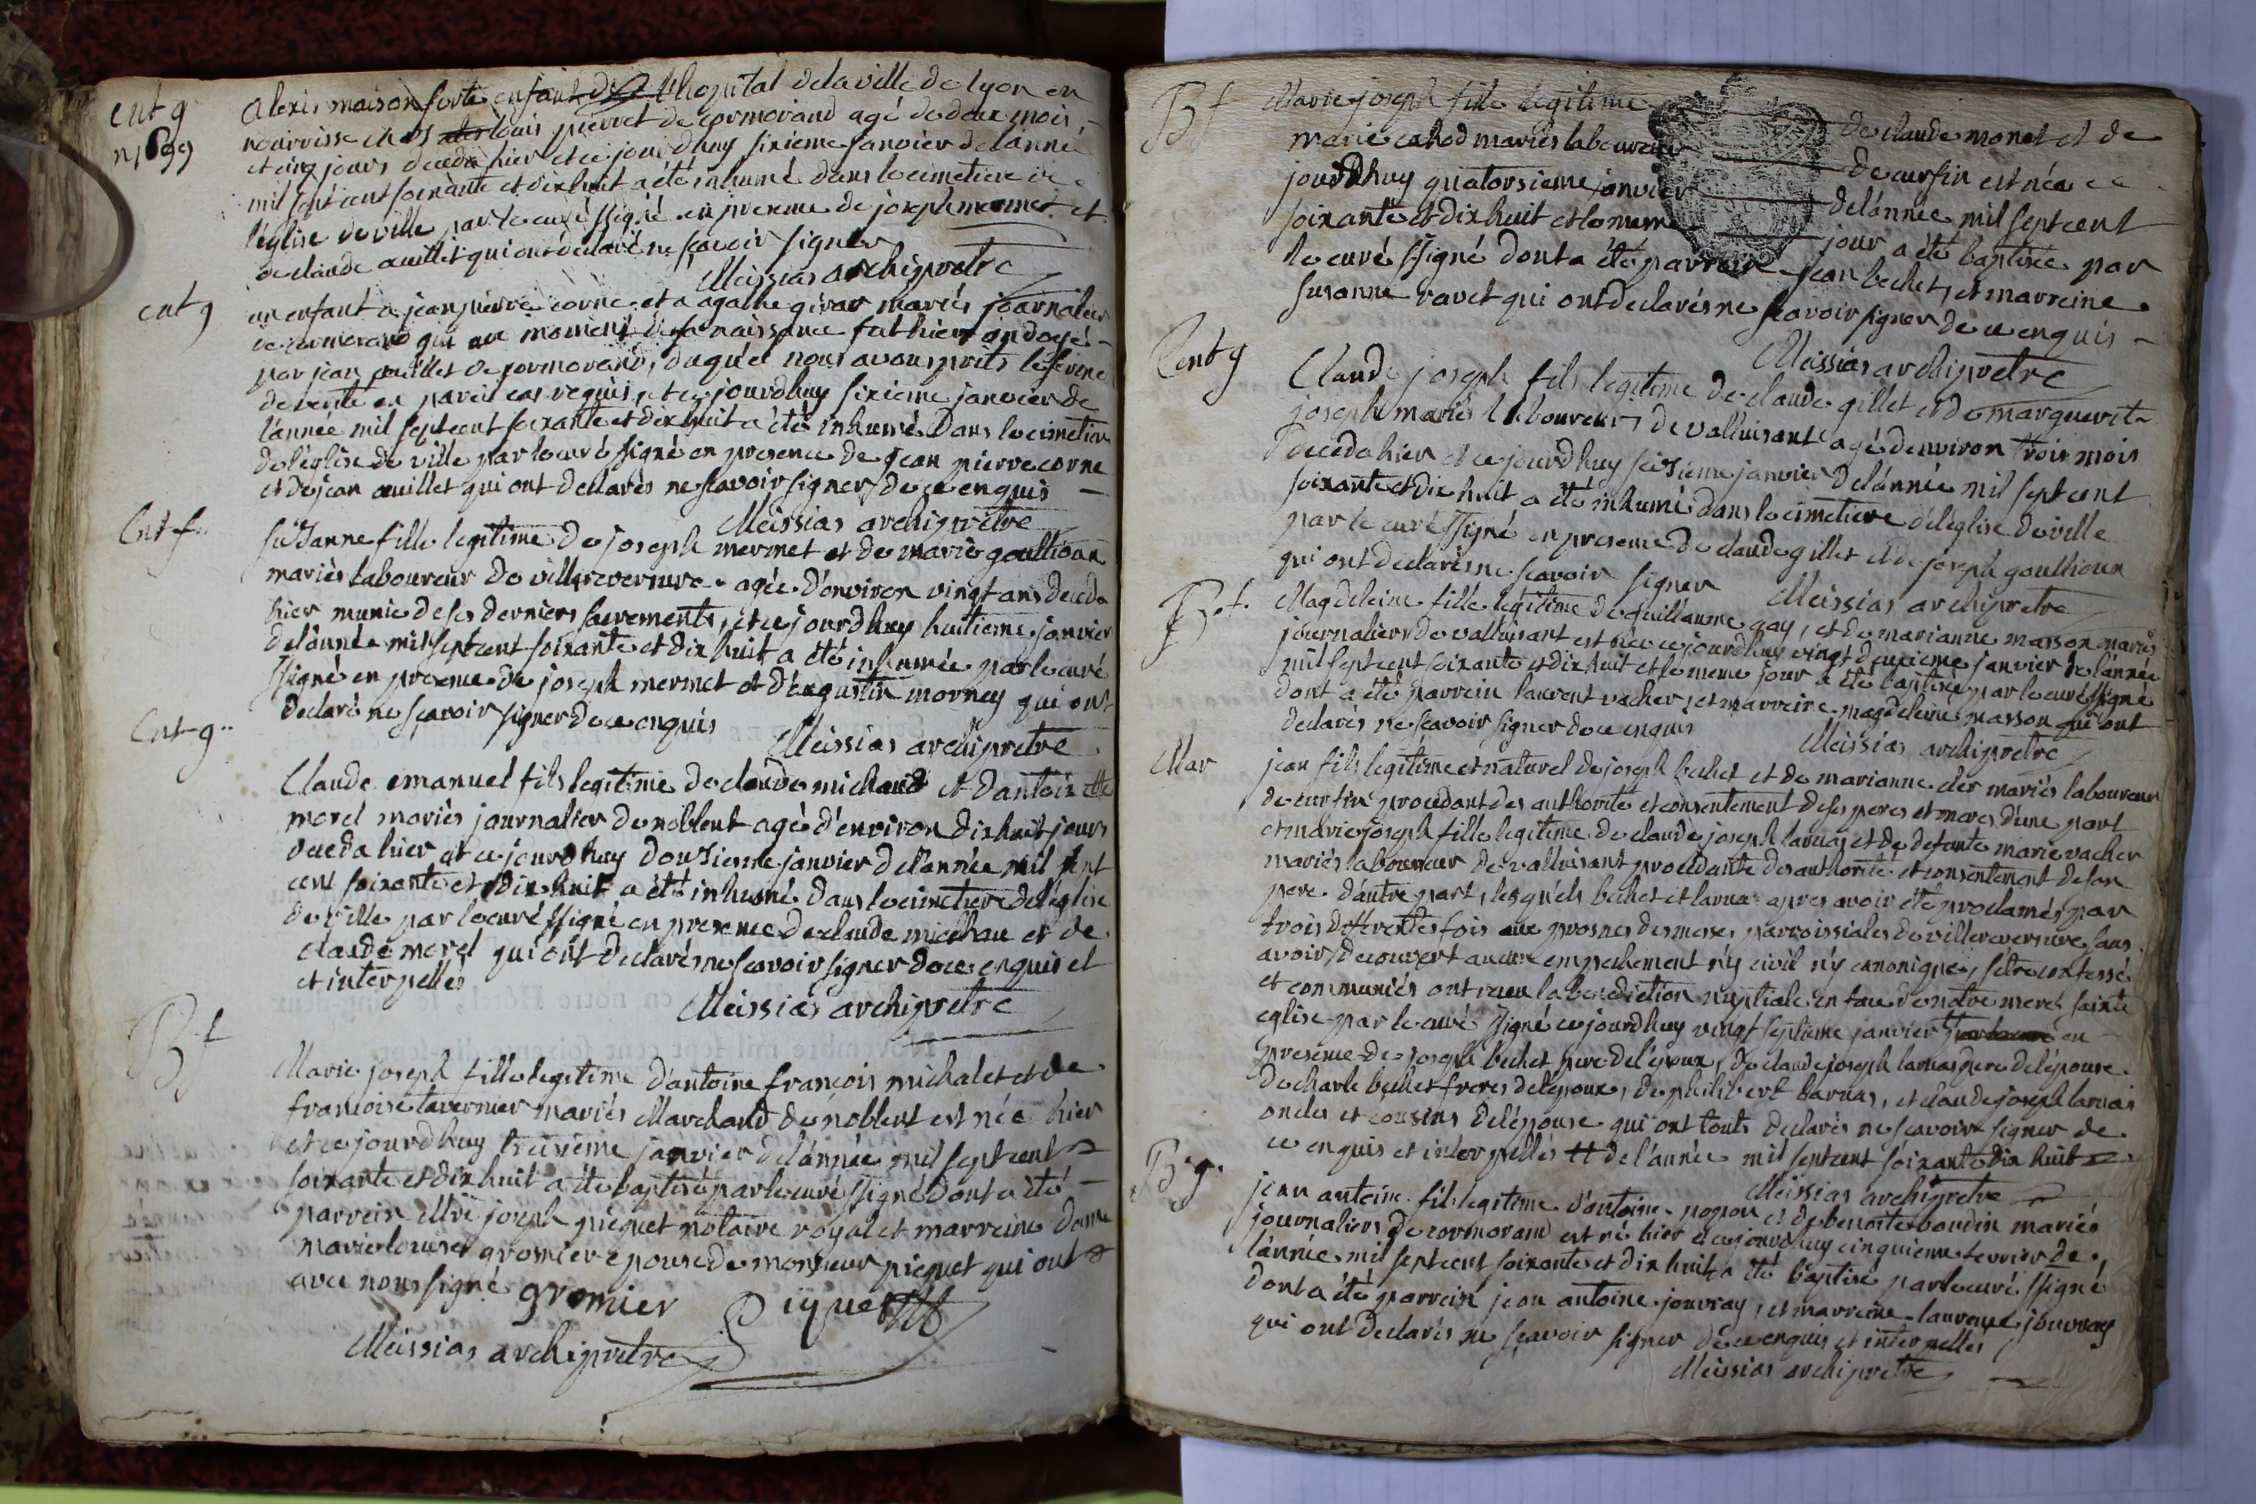 Ent g
n. 699
alexis maison forte enfant de l'hopital de la ville de lyon en
nourrisse chés louis pierret de cormorand agé de deux mois
et cinq jours deceda hier et ce jourdhuy sixieme janvier de lánnée
mil sept cent soixante et dixhuit a été inhumé dans le cimetiere de
l'église de ville par le curé ssigné en presence de joseph mermet et
de claude œuillet qui ont déclaré ne sçavoir signer
Meissias archipretre
ent g
un enfant a jean pierre corne et a agathe girar mariés journalier
de cormorand qui au moment de sa naissance fut hier ondoyé
par jean œuillet de cormorand, duquel nous avons prits le serment
de verité en pareil cas requis, et ce jourdhuy sixieme janvier de
lánnée mil sept cent soixante et dixhuit a été inhumé dans le cimetiere
de l'église de ville par le curé ssigné en presence de jean pierre corne
et de jean œuillet qui ont declarés ne sçavoir signer de ce enquis
Meissias archiprêtre
Ent f.
suzanne fille legitime de joseph mermet et de marie goultioux
mariés laboureur de villereversure agée d'environ vingt ans deceda
hier munie de ses derniers sacrements, et ce jourdhuy huitieme janvier
de lánnée mil sept cent soixante et dix huit a été inhumée par le curé
ssigné en presence de joseph mermet et d'augustin mornay qui ont
declaré ne sçavoir signer de ce enquis
Meissias archipretre
Ent g.
Claude emanuel fils legitime de claude michaud et d'antoinette
morel mariés journalier de noblent agé d'environ dixhuit jours
deceda hier et ce jourdhuy douzieme janvier de l'année mil sept
cent soixante et dix huit a été inhumé dans le cimetiere de l'église
de ville par le curé ssigné en presence de claude michau et de
claude morel qui ont declarés ne sçavoir signer de ce enquis et
et interpellés
Meissias archipretre
B f
Marie joseph fille legitime d'antoine françois michalet et de
françoise tavernier mariés Marchand de noblent est née hier
et ce jourdhuy treizieme janvier de lánnée mil sept cent
soixante et dix huit a été baptisé par le curé ssigné dont a été
parrein Mre joseph piquet notaire royal et marreine dame
marie louise gromier epouse de monsieur piquet qui ont
avec nous signé
gromier Piquet
Meissias archiprêtre
B f
Marie joseph fille legitime de claude monet et de
marie cahod mariés laboureur de curfin est née ce
jourdhuy quatorsieme janvier de lánnée mil sept cent
soixante et dixhuit et le meme jour a été baptisée par
le curé ssigné dont a été parrein jean bechet, et marreine
susanne ravet qui ont declarés ne sçavoir signer de ce enquis
Meissias archiprêtre
Ent g
Claude joseph fils legitime de claude gillet et de marguerite
joseph mariés laboureurs de valluisant agé d'environ trois mois
deceda hier et ce jourdhuy seizieme janvier de lánnée mil sept cent
soixante et dix huit a été inhumé dans le cimetiere de l'église de ville
par le curé ssigné en presence de claude gillet et de joseph goultioux
qui ont declarés ne sçavoir signer
Meissias archiprêtre
B. f.
Magdeleine fille legitime de guillaume gay, et de marianne masson mariés
journaliers de valluisant est née ce jourdhuy vingt deuxieme janvier de lánnée
mil sept cent soixante et dix huit et le meme jour a été baptisée par le curé ssigné
dont a été parrein laurent vacher, et marreine magdeleine masson qui ont
declarés ne sçavoir signer de ce enquis
Meissias archiprêtre
Mar
jean fils legitime et naturel de joseph bechet et de marianne cler mariés laboureur
de curfin procedant des authorité et consentement de ses peres et meres d'une part
et marie joseph fille legitime de claude joseph larnas et de defunte marie vacher
mariés laboureur de valluisant procedante des authorité et consentement de son
pere d'autre part, lesquels bechet et larnas apres avoir été proclamés par
trois differentes fois aux prosnes des messes parroissiales de villereversure sans
avoir découvert aucun empechement n'y civil n'y canonique, s'etre confessé
et communiés ont reçu la benediction nuptiale en face de notre mere sainte
eglise par le curé ssigné ce jourdhuy vingt septieme janvier en
presence de joseph bechet pere de l'époux, de claude joseph larnas pere de l'épouse
de charle bechet freres de l'epoux, de philibert larnas, et claude joseph larnas
oncles et cousins de l'épouse qui ont touts declarés ne sçavoir signer de
ce enquis et interpellés # de l'année mil sept cent soixante dix huit
Meissias archiprêtre
B. g.
jean antoine fils legitime d'antoine popon et de benoite vaudin mariés
journaliers de cormorand est né hier et ce jourdhuy cinquieme fevrier de
lánnée mil sept cent soixante et dix huit a été baptisé par le curé ssigné
dont a été parrein jean antoine jouvray, et marreine laurence jouvray
qui ont declarés ne sçavoir signer de ce enquis et interpellés
Meissias archiprêtre